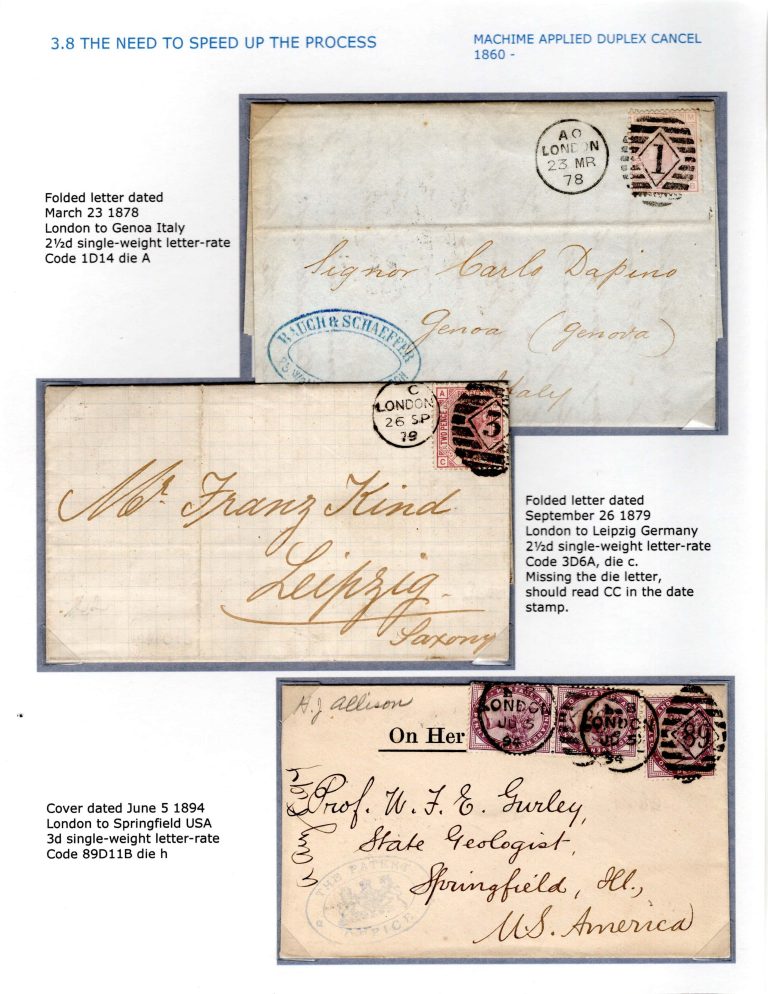 3.8 THE NEED TO SPEED UP THE PROCESS
MACHIME APPLIED DUPLEX CANCEL
1860 -
Folded letter dated
March 23 1878
London to Genoa Italy
2½d single-weight letter-rate
Code 1D14 die A
AO
LONDON
23 MR
78
1
Signor Carlo Dapino
Genoa (Genova)
Italy
RAUCH & SCHAEFFER
C
LONDON
26 SP
79
3
A
TWO PENCE
C
Mr. Franz Kind
Leipzig.
Saxony
Folded letter dated
September 26 1879
London to Leipzig Germany
2½d single-weight letter-rate
Code 3D6A, die c.
Missing the die letter,
should read CC in the date
stamp.
H.J Allison
On Her
LONDON
JU 5
94
LONDON
JU 5
94
89
Prof. W. F. E. Gurley,
State Geologist,
Springfield, Ill.,
U.S. America
THE PATENT
OFFICE
Cover dated June 5 1894
London to Springfield USA
3d single-weight letter-rate
Code 89D11B die h